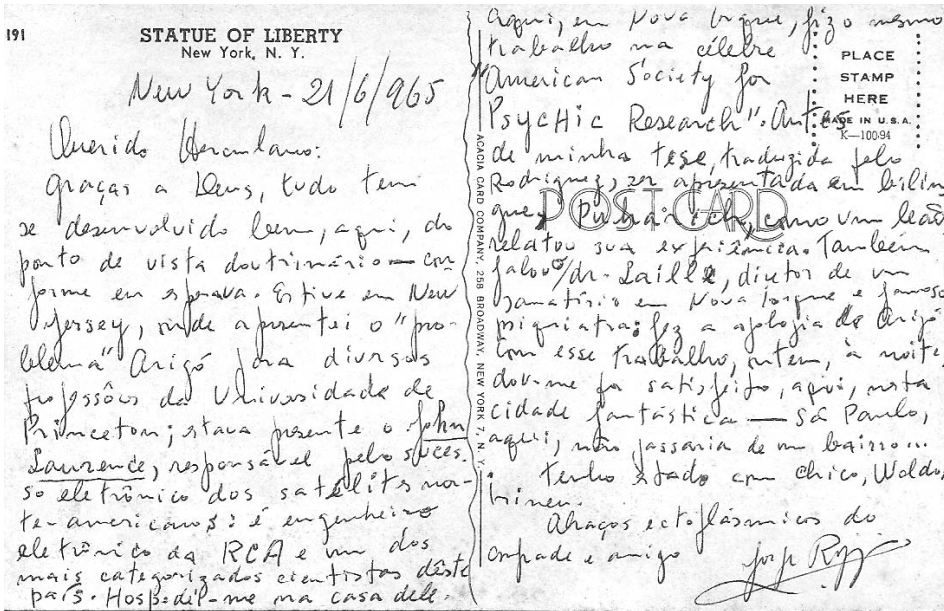 191
STATUE OF LIBERTY
New York, N. Y.
New York - 21/6/965
Querido Herculano:
Graças a Deus, tudo tem
se desenvolvido bem, aqui, do
ponto de vista doutrinário — con
forme eu esperava. Estive em New
Jersey, onde apresentei o "pro-
blema" Arigó para diversos
professôres da Universidade de
Princeton; estava presente o John
Laurence, responsável pelo suces-
so eletrônico dos satélites nor-
te-americanos: é engenheiro
eletrônico da RCA e um dos
mais categorizados cientistas dêste
país. Hospedei-me na casa dele.
ACACIA CARD COMPANY, 258 BROADWAY, NEW YORK 7, N. Y.
Aqui, em Nova Iorque, fiz o mesmo
trabalho na célebre
"American Society for
Psychic Research". Antes
de minha tese, traduzida pelo
Rodriguez, ser apresentada em bilin
gue, Puharich, como um leão,
relatou sua experiência. Também
falou o/dr. Laille, diretor de um
sanatório em Nova Iorque e famoso
psiquiatra; fez a apologia de Arigó
Com esse trabalho, ontem, à noite,
dou-me por satisfeito, aqui, nesta
cidade fantástica — São Paulo,
aqui, não passaria de um bairro...
Tenho estado com Chico, Waldo,
Irineu.
Abraços ectoplásmicos do
compadre e amigo Jorge Rizzini
PLACE
STAMP
HERE
MADE IN U.S.A.
K-10094
POST CARD